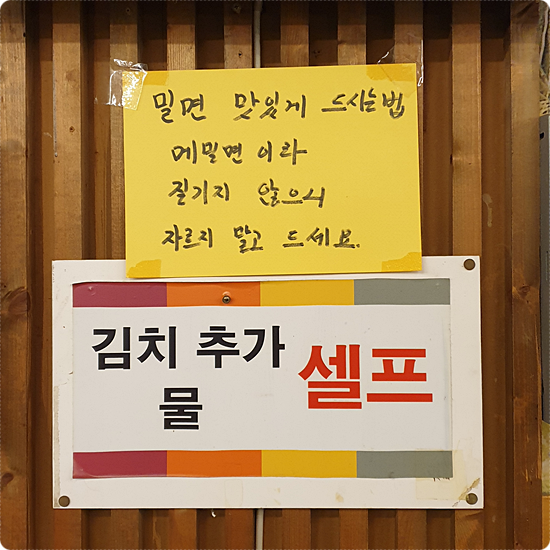 밀면 맛있게 드시는법
메밀면이라
질기지 않으니
자르지 말고 드세요.
김치 추가
물
셀프